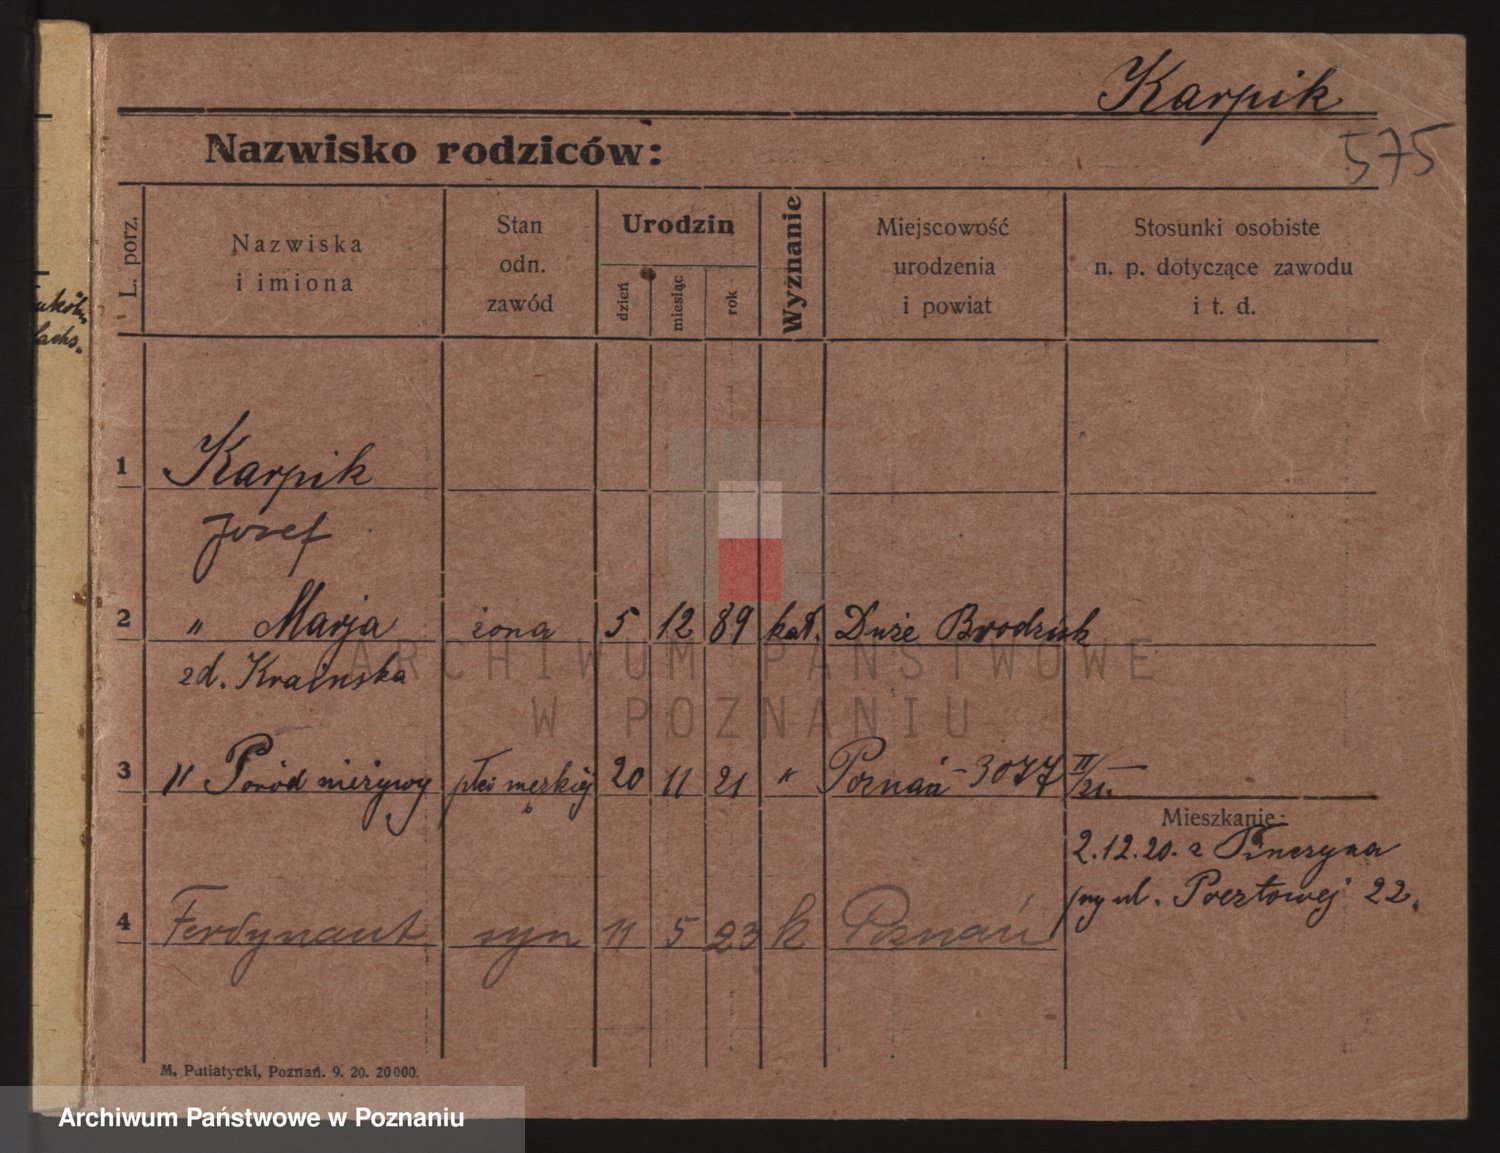 Karpik
575
Nazwisko rodziców:
L. porz.
Nazwiska
i imiona
Stan
odn.
zawód
Urodzin
dzień
miesiąc
rok
Wyznanie
Miejscowość
urodzenia
i powiat
Stosunki osobiste
n. p. dotyczące zawodu
i t. d.
1 Karpik
Josef
2 " Marja żona 5 12 89 kat. Duże
zd. Kraińska
3 " Poród nieżywy płci męzkiej 20 11 21 " Poznań - 3077 II/21.
Mieszkanie:
2.12.20. z
przy ul. Pocztowej 22.
4 Ferdynant syn 11 5 23 k Poznań
M. Putiatycki, Poznań. 9. 20. 20000.
ARCHIWUM PAŃSTWOWE
W POZNANIU
Archiwum Państwowe w Poznaniu